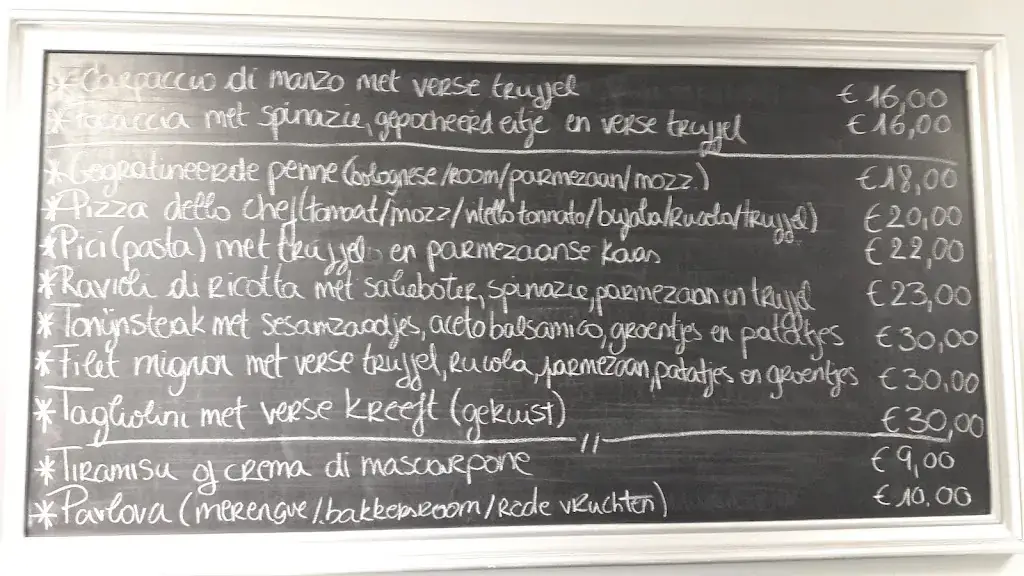 * Carpaccio di manzo met verse truffel € 16,00
* Focaccia met spinazie, gepocheerd eitje en verse truffel € 16,00
* Gegratineerde penne (bolognese/room/parmezaan/mozz.) € 18,00
* Pizza dello chef (tomaat/mozz/vitello tonnato/bufala/rucola/truffel) € 20,00
* Pici (pasta) met truffel en parmezaanse kaas € 22,00
* Ravioli di Ricotta met salieboter, spinazie, parmezaan en truffel € 23,00
* Tonijnsteak met sesamzaadjes, aceto balsamico, groentjes en patatjes € 30,00
* Filet mignon met verse truffel, rucola, parmezaan, patatjes en groentjes € 30,00
* Tagliolini met verse kreeft (gekuist) € 30,00
* Tiramisu of crema di mascarpone € 9,00
* Pavlova (merengue/bakkersroom/rode vruchten) € 10,00